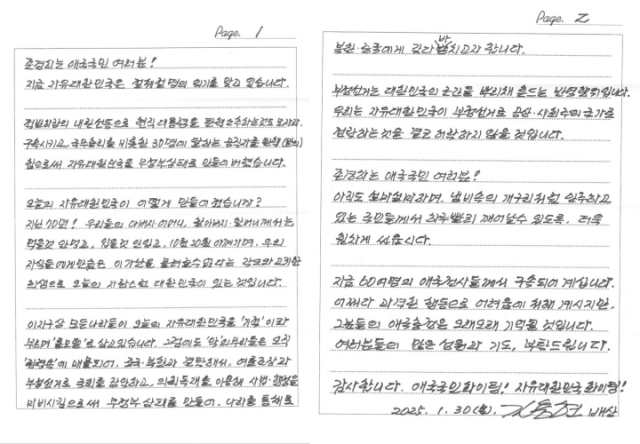 Page. 1
존경하는 애국국민 여러분!
지금 자유대한민국은 절체절명의 위기를 맞고 있습니다.
적반하장의 내란선동으로 현직 대통령을 탄핵소추하는것도 모자라
구속시키고, 국무총리를 비롯한 30명에 달하는 공직자를 탄핵(발의)
함으로써 자유대한민국을 무정부상태로 만들어 버렸습니다.
오늘의 자유대한민국이 어떻게 만들어 졌습니까?
지난 70년! 우리들의 아버지·어머니, 할아버지·할머니께서는
먹을것 안먹고, 입을것 안입고, 10원 20원 아껴가며, 우리
자식들에게만큼은 이 가난을 물려줄수 없다는 각고의 고귀한
희생으로 오늘의 자랑스런 대한민국이 있는 것입니다.
이지구상 모든나라들이 오늘의 자유대한민국을 '기적'이라
부르며 '롤모델'로 삼고있습니다. 그럼에도 '악'의무리들은 오직
에 매몰되어, 중국·북한과 결탁해서, 여론조작과
부정선거로 국회를 장악하고, 의회독재를 이용해 사법·행정을
마비시킴으로써 무정부상태를 만들어, 나라를 통째로
Page. 2
북한·중국에게 갖다 바치고자 합니다.
부정선거는 대한민국의 근간을 뿌리채 흔드는 반역행위입니다.
우리는 자유대한민국이 부정선거로 공산·사회주의 국가로
전락하는것을 결코 허락하지 않을 것입니다.
존경하는 애국국민 여러분!
아직도 설마설마하며, 냄비속의 개구리처럼 안주하고
있는 국민들께서 하루빨리 깨어날수 있도록, 더욱
힘차게 싸웁시다.
지금 60여명의 애국전사들께서 구속되어 계십니다.
어쩌다 과격한 행동으로 어려움에 처해 계시지만,
그분들의 애국충정은 오래오래 기억될 것입니다.
여러분들의 많은 성원과 기도, 부탁드립니다.
감사합니다. 애국국민 화이팅! 자유대한민국 화이팅!
2025. 1. 30(목). 김용현 배상